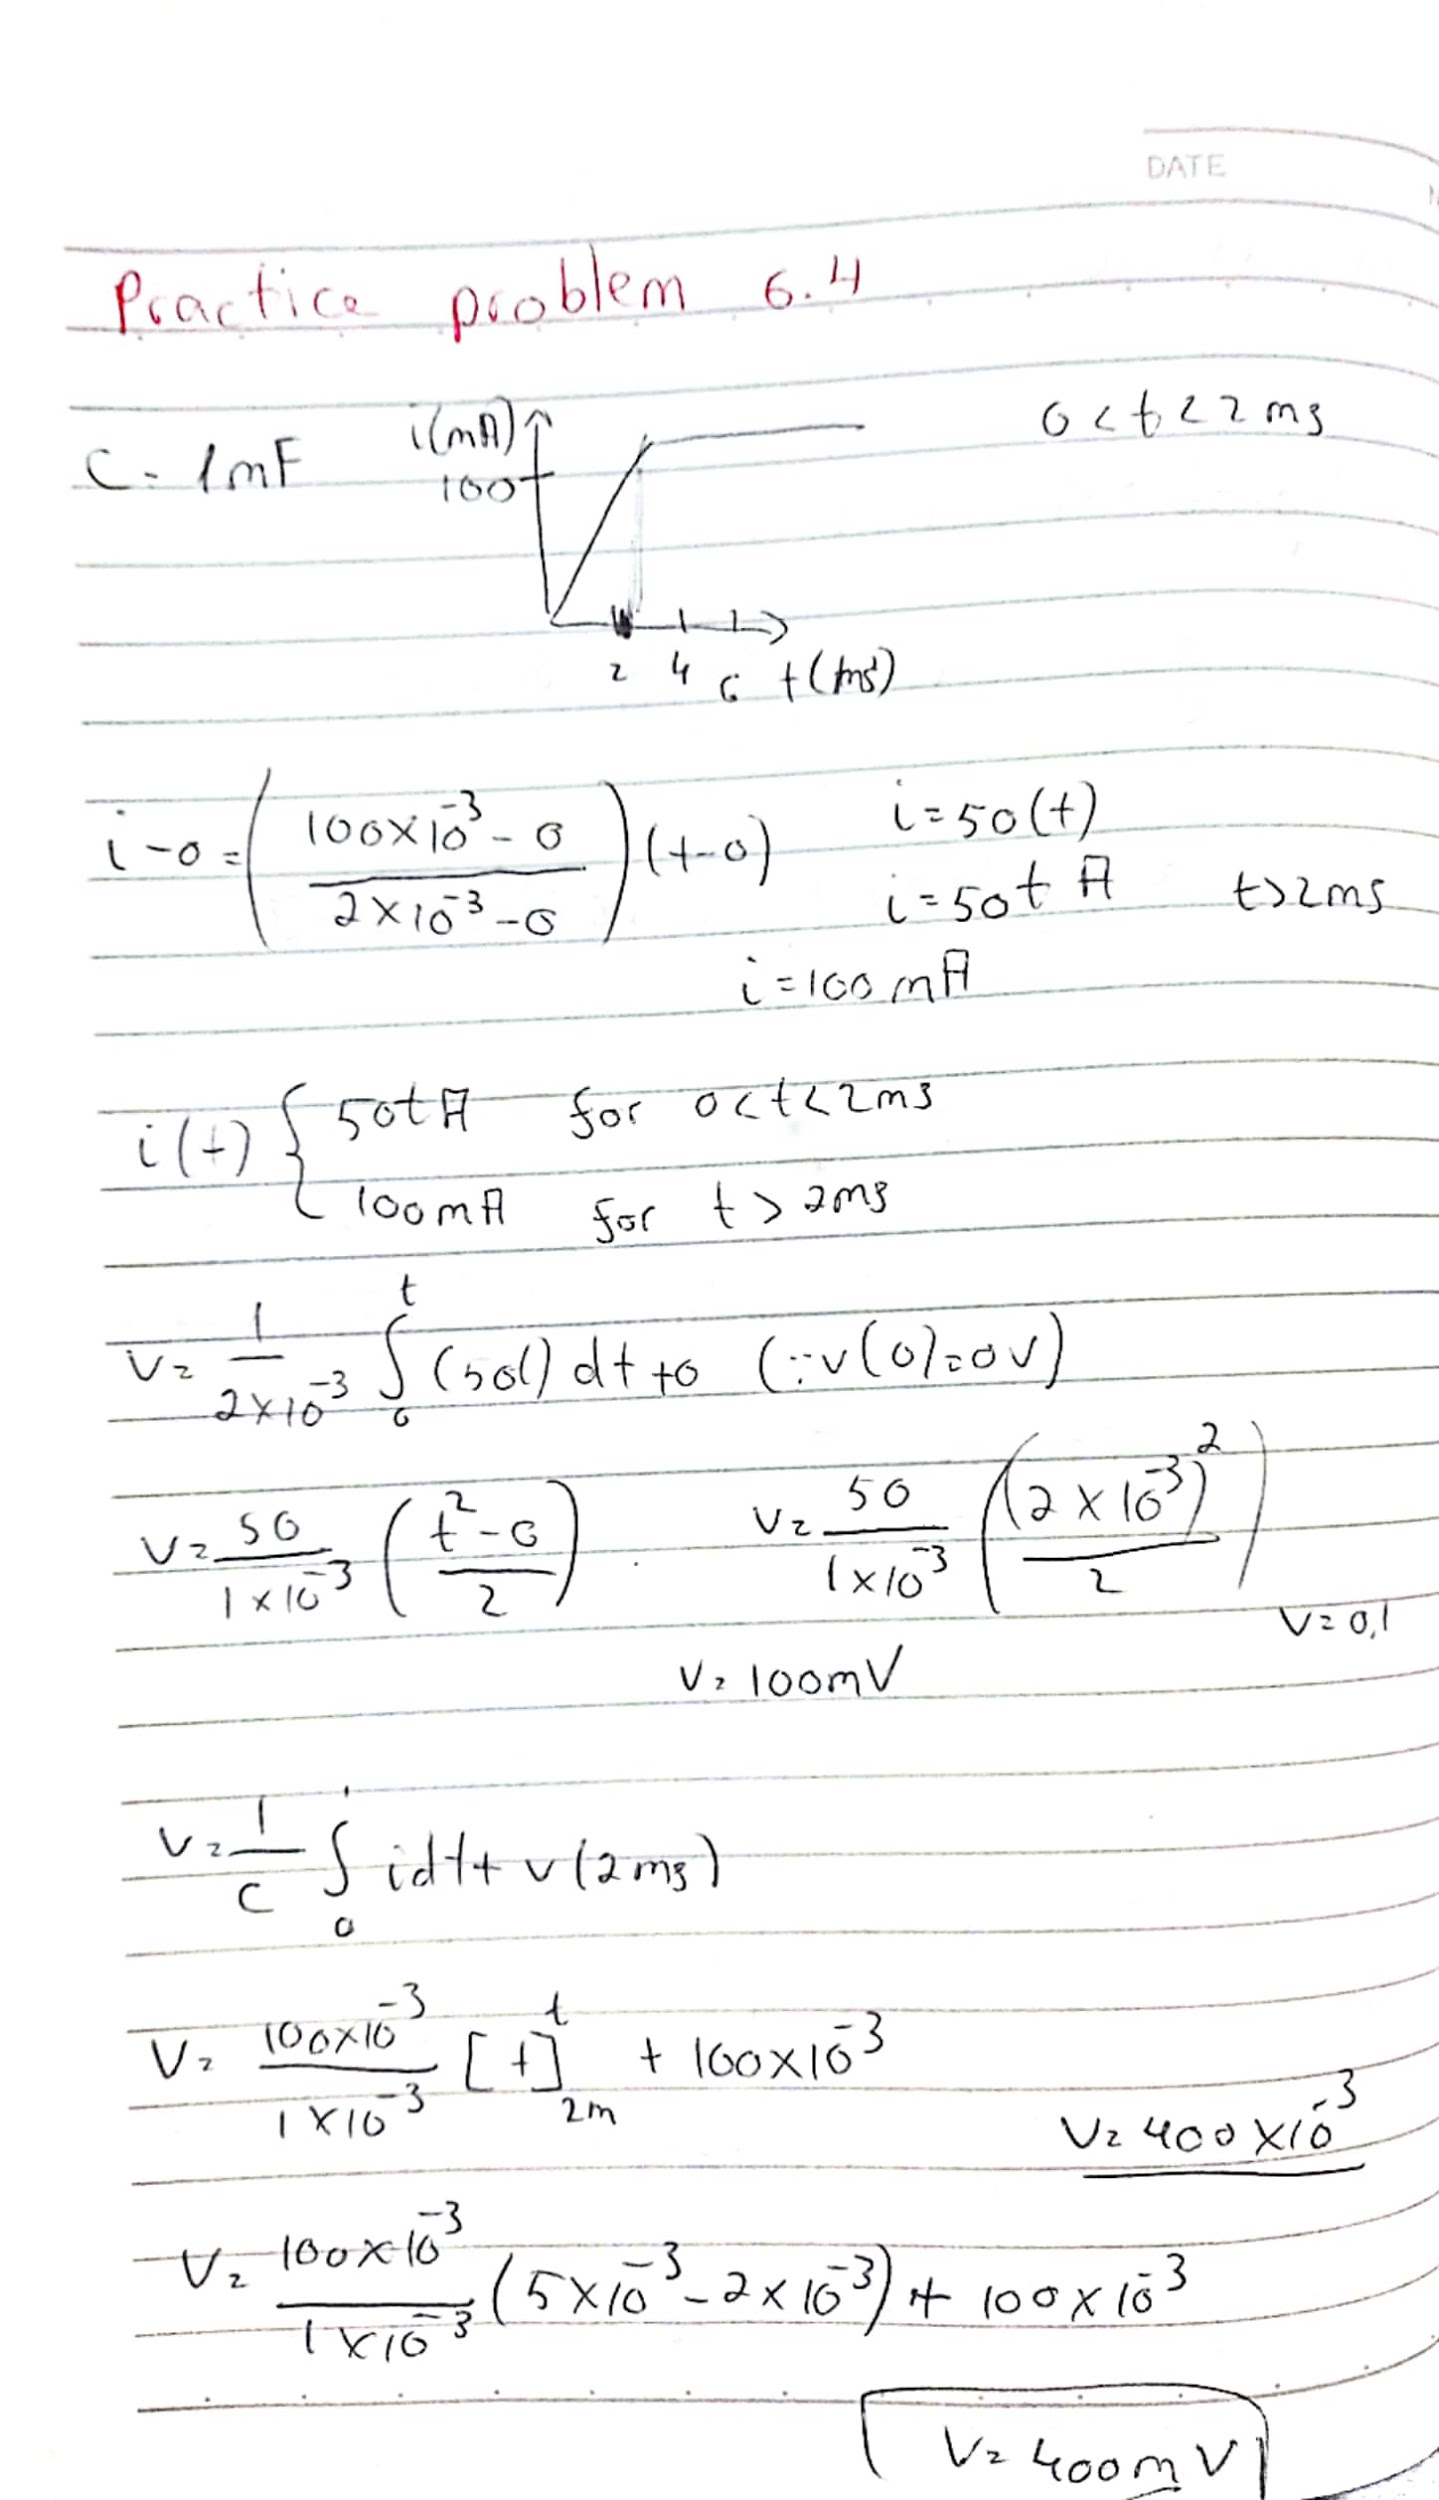 DATE
Practice problem 6.4
C = 1mF i(mA) 100 0<t<2ms
2 4 6 t(ms)
i-0 = (100×10^-3 - 0 / 2×10^-3 - 0)(t-0) i=50(t)
i=50t A t>2ms
i=100mA
i(t) { 50tA for 0<t<2ms
100mA for t>2ms
V= 1/2×10^-3 ∫_0^t (50t) dt+0 (∵v(0)=0v)
V= 50/1×10^-3 (t^2-0 / 2) . V= 50/1×10^-3 ((2×10^-3)^2 / 2)
V=0,1
V= 100mV
V= 1/C ∫_0 idt+v(2ms)
V= 100×10^-3/1×10^-3 [t]_2m^t + 100×10^-3
V= 400×10^-3
V= 100×10^-3/1×10^-3 (5×10^-3 - 2×10^-3) + 100×10^-3
V= 400mV